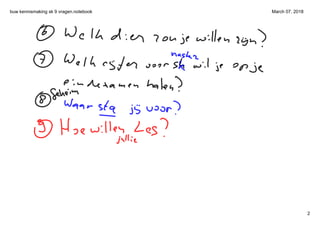 buw kennismaking at 9 vragen.notebook
March 07, 2018
⑥ Welk dier zou je willen zijn?
⑦ Welk cijfer voor sk wil je op je
nask2
eindexamen halen?
⑧ Geheim
Waar sta jij voor?
⑨ Hoe willen Les?
jullie
2